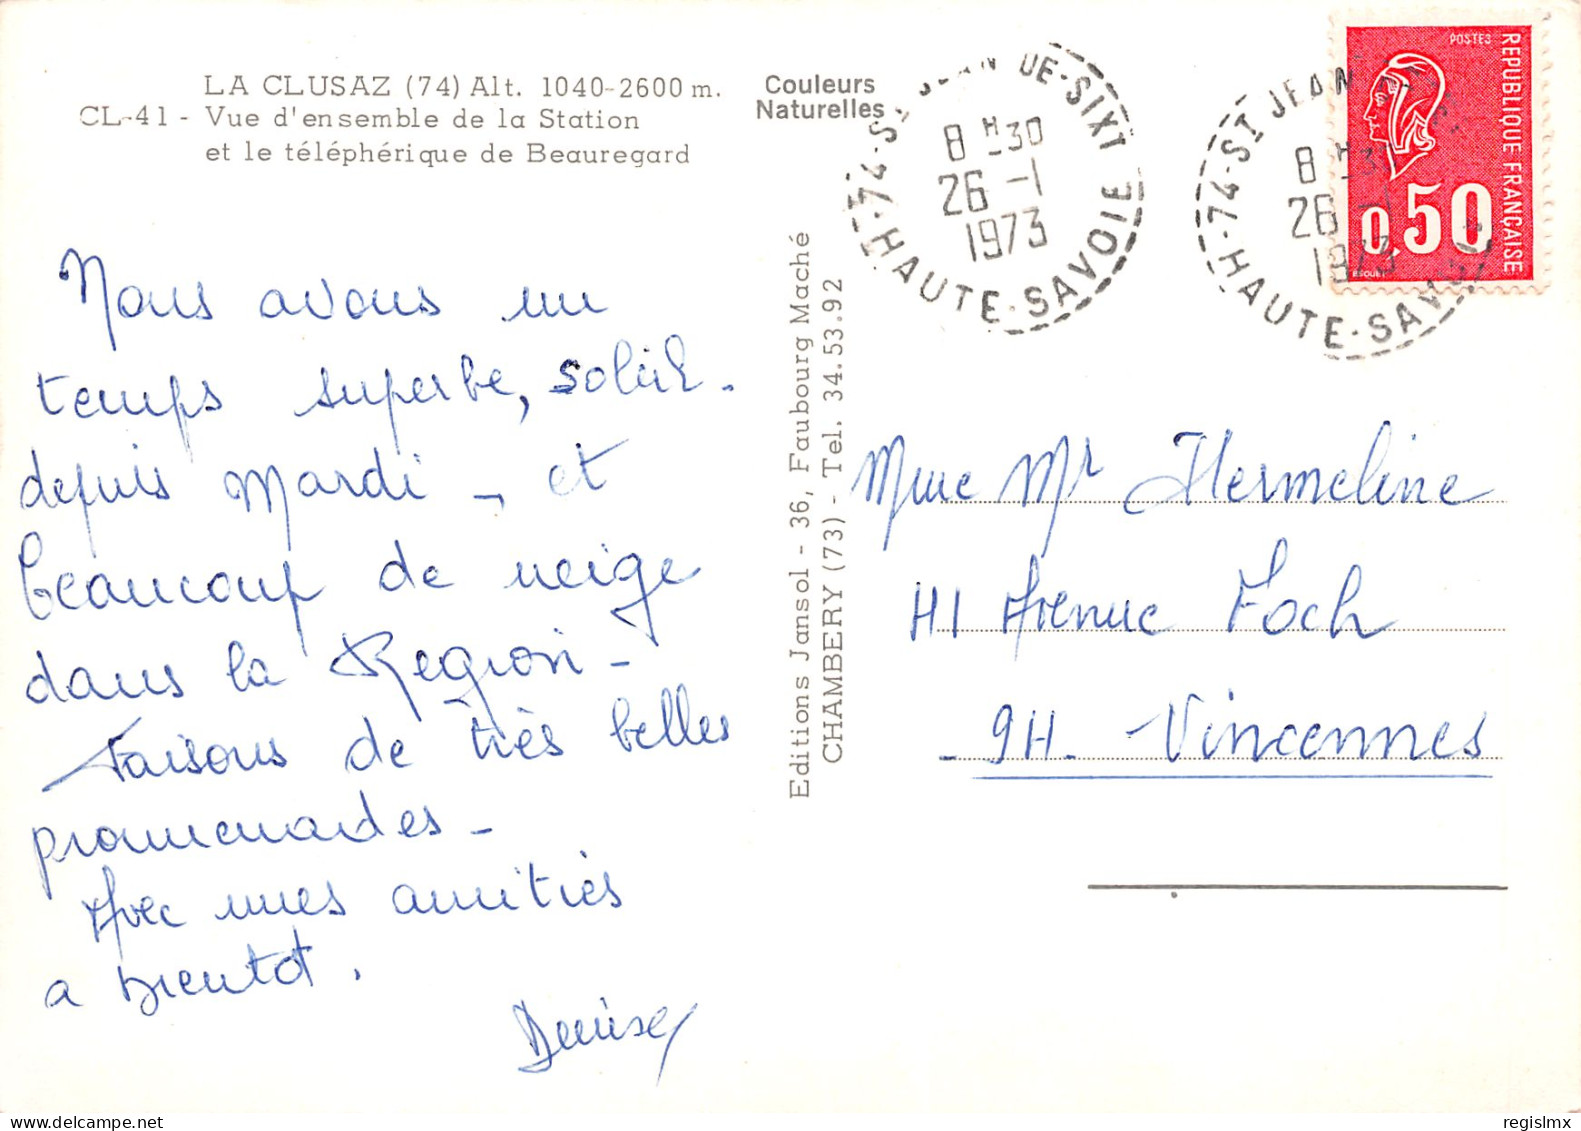 LA CLUSAZ (74) Alt. 1040-2600 m.
CL-41 - Vue d'ensemble de la Station
et le téléphérique de Beauregard
Couleurs
Naturelles
Nous avons un
temps superbe, soleil -
depuis Mardi - et
beaucoup de neige
dans la Region -
Faisons de très belles
promenades -
Avec mes amitiés
a bientot.
Denise
Editions Jansol - 36, Faubourg Maché
CHAMBERY (73) - Tel. 34.53.92
74-ST JEAN-DE-SIXT
8H-30
26-1
1973
HAUTE-SAVOIE
74-ST JEAN
8H-30
26-1
1973
HAUTE-SAVOIE
POSTES
REPUBLIQUE FRANÇAISE
0,50
BEQUET
Mme Mr Hermeline
41 Avenue Foch
- 94 - Vincennes
regislmx
delcampe.net